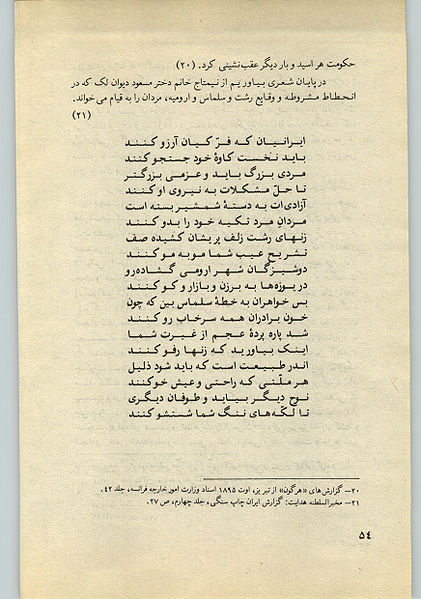 حکومت هراسید و بار دیگر عقب نشینی کرد. (۲۰)
در پایان شعری بیاوریم از نیمتاج خانم دختر مسعود دیوان لک که در
انحطاط مشروطه و وقایع رشت و سلماس و ارومیه، مردان را به قیام می خواند.
(۲۱)
ایرانیان که فرّ کیان آرزو کنند
باید نخست کاوهٔ خود جستجو کنند
مردی بزرگ باید و عزمی بزرگتر
تا حلّ مشکلات به نیروی او کنند
آزادی ات به دستهٔ شمشیر بسته است
مردانِ مرد تکیه خود را بدو کنند
زنهای رشت زلف پریشان کشیده صف
تشریح عیب شما مو به مو کنند
دوشیزگان شهر ارومی گشاده رو
دریوزه ها به برزن و بازار و کو کنند
بس خواهران به خطهٔ سلماس بین که چون
خون برادران همه سرخاب رو کنند
شد پاره پردهٔ عجم از غیرت شما
اینک بیاورید که زنها رفو کنند
اندر طبیعت است که باید شود ذلیل
هر ملّتی که راحتی و عیش خو کنند
نوح دیگر بباید و طوفان دیگری
تا لکّه های ننگ شما شستشو کنند
۲۰– گزارش های «هرگون» از تبریز، اوت ۱۸۹۵ اسناد وزارت امور خارجه فرانسه، جلد ۴۲.
۲۱– مخبرالسلطنه هدایت: گزارش ایران چاپ سنگی، جلد چهارم، ص ۲۷.
۵۴